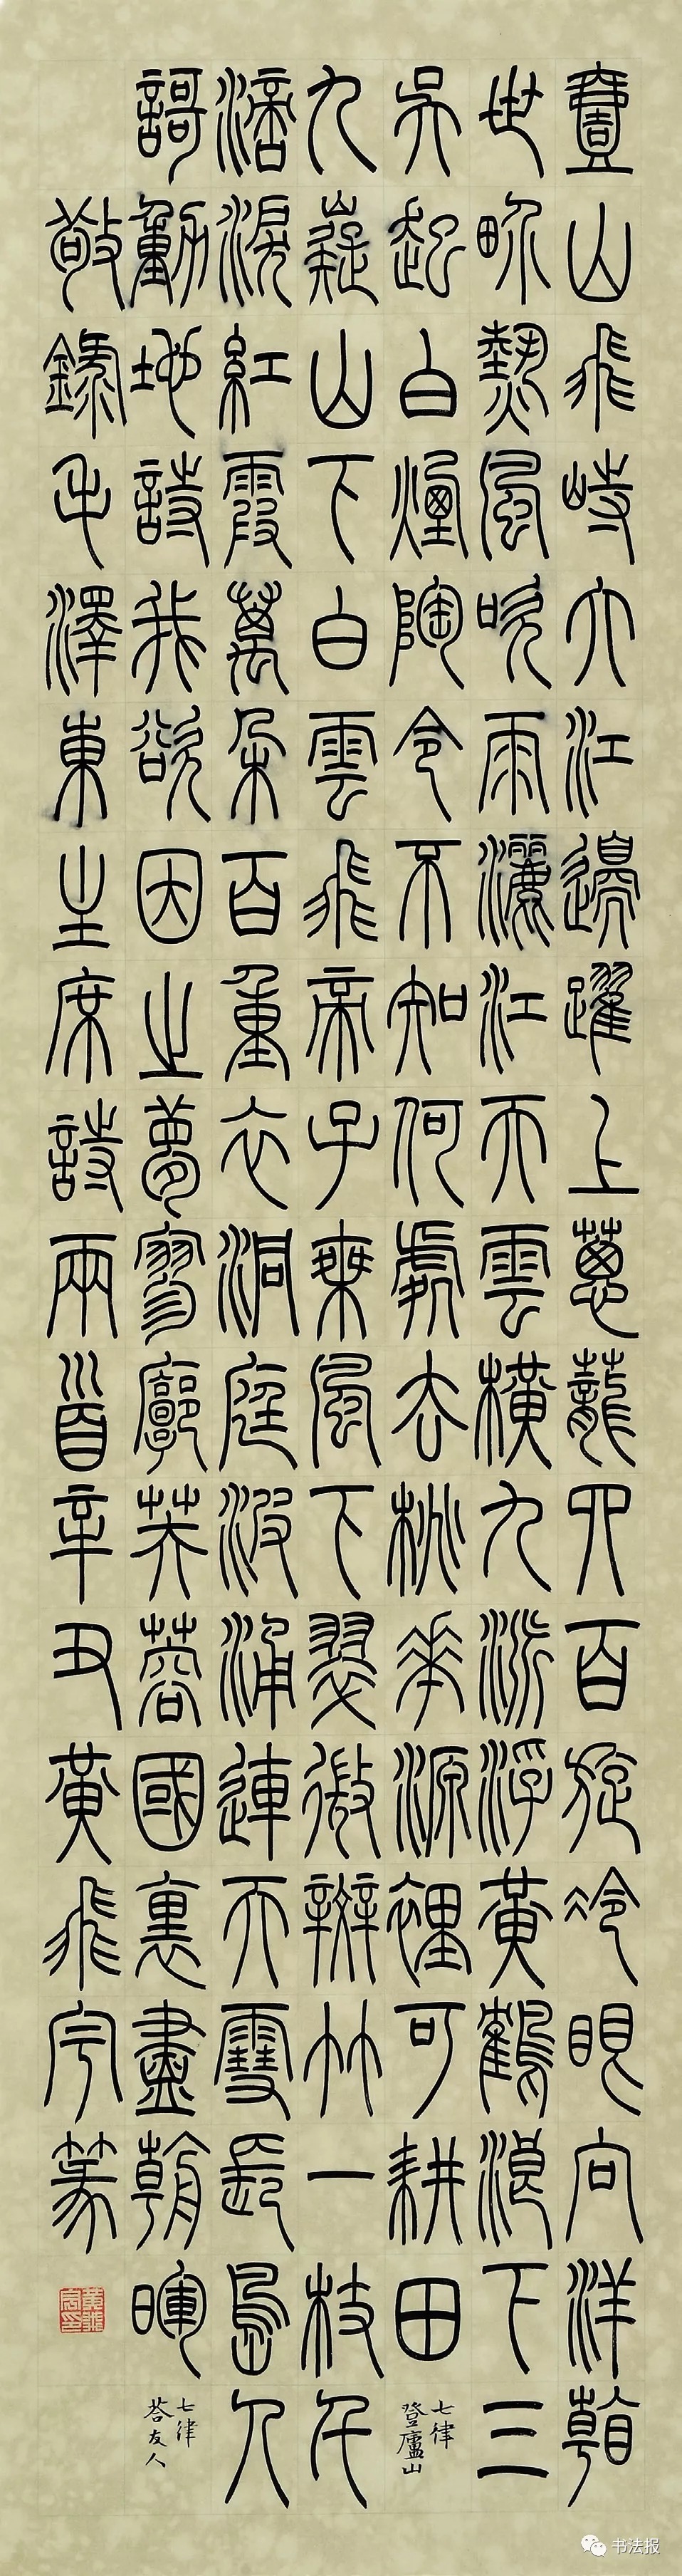 壹山飛峙大江邊躍上蔥蘢四百旋冷眼向洋看
世界熱風吹雨灑江天雲橫九派浮黃鶴浪下三
吳起白煙陶令不知何處去桃花源裡可耕田
七律
登廬山
九嶷山下白雲飛帝子乘風下翠微辬竹一枝千
滴淚紅霞萬朵百重衣洞庭波涌連天雪長島人
謌動地詩我欲因之夢寥廓芙蓉國裏盡朝暉
七律
答友人
敬錄毛澤東主席詩兩首辛丑黃飛宇篆
黃飛宇印
书法报